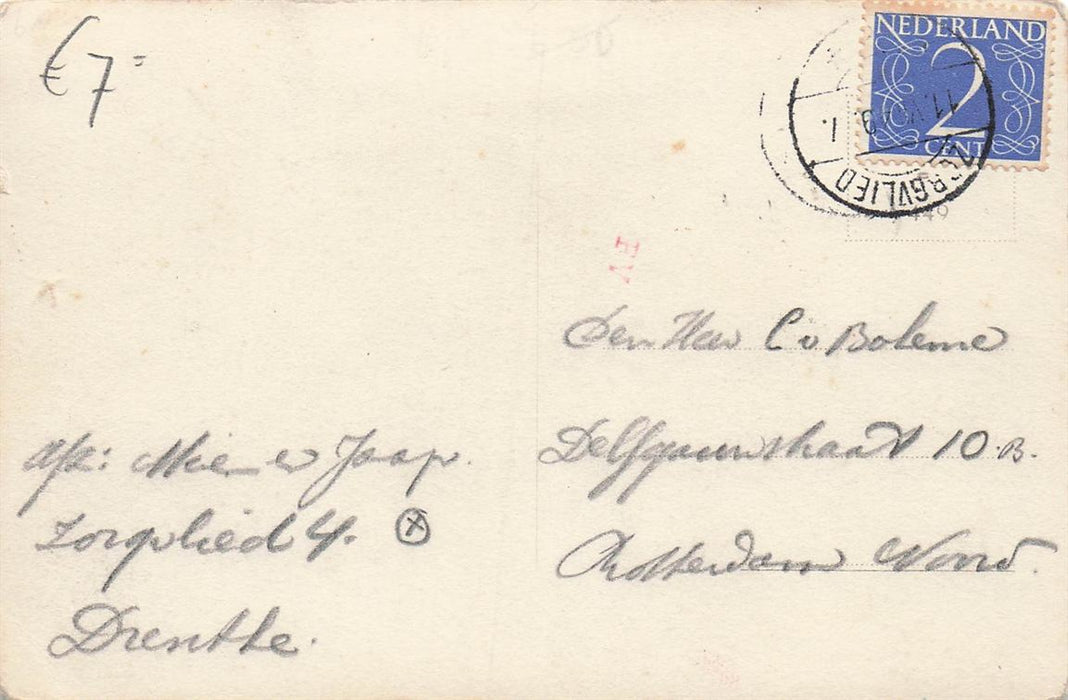 € 7=
NEDERLAND
2
CENT
ZORGVLIED
Den Heer C v Boheme
Delfgauwstraat 10.B.
Rotterdam Noord.
Afz: Mien en Jaap.
Zorgvlied 4. X
Drenthe.